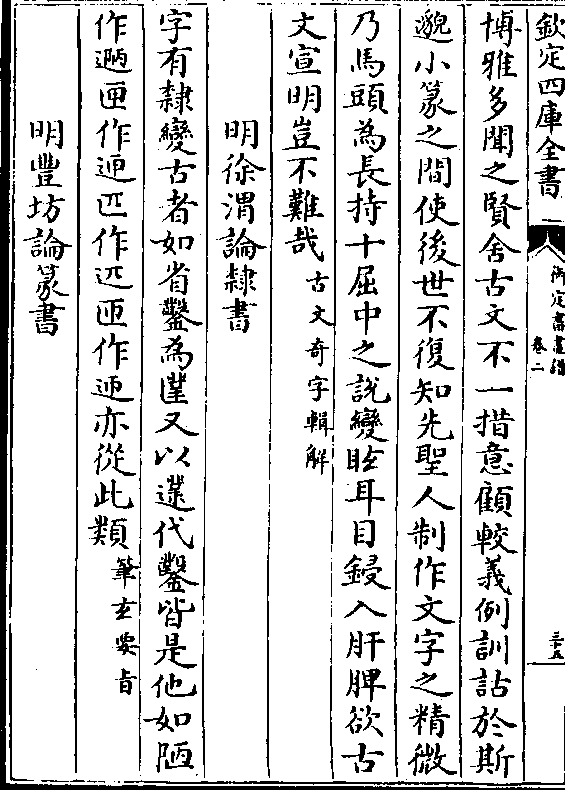 欽定四庫全書
御定書畫譜
卷二
三十五
博雅多聞之賢舍古文不一措意顧較義例訓詁於斯
邈小篆之間使後世不復知先聖人制作文字之精微
乃馬頭為長持十屈中之說變眩耳目鋟入肝脾欲古
文宣明豈不難哉 古文奇字輯解
明徐渭論隸書
字有隸變古者如省鑿為 又以 代鑿皆是他如陋
作 匣作 匹作 匝作 亦從此類 筆玄要旨
明豐坊論篆書